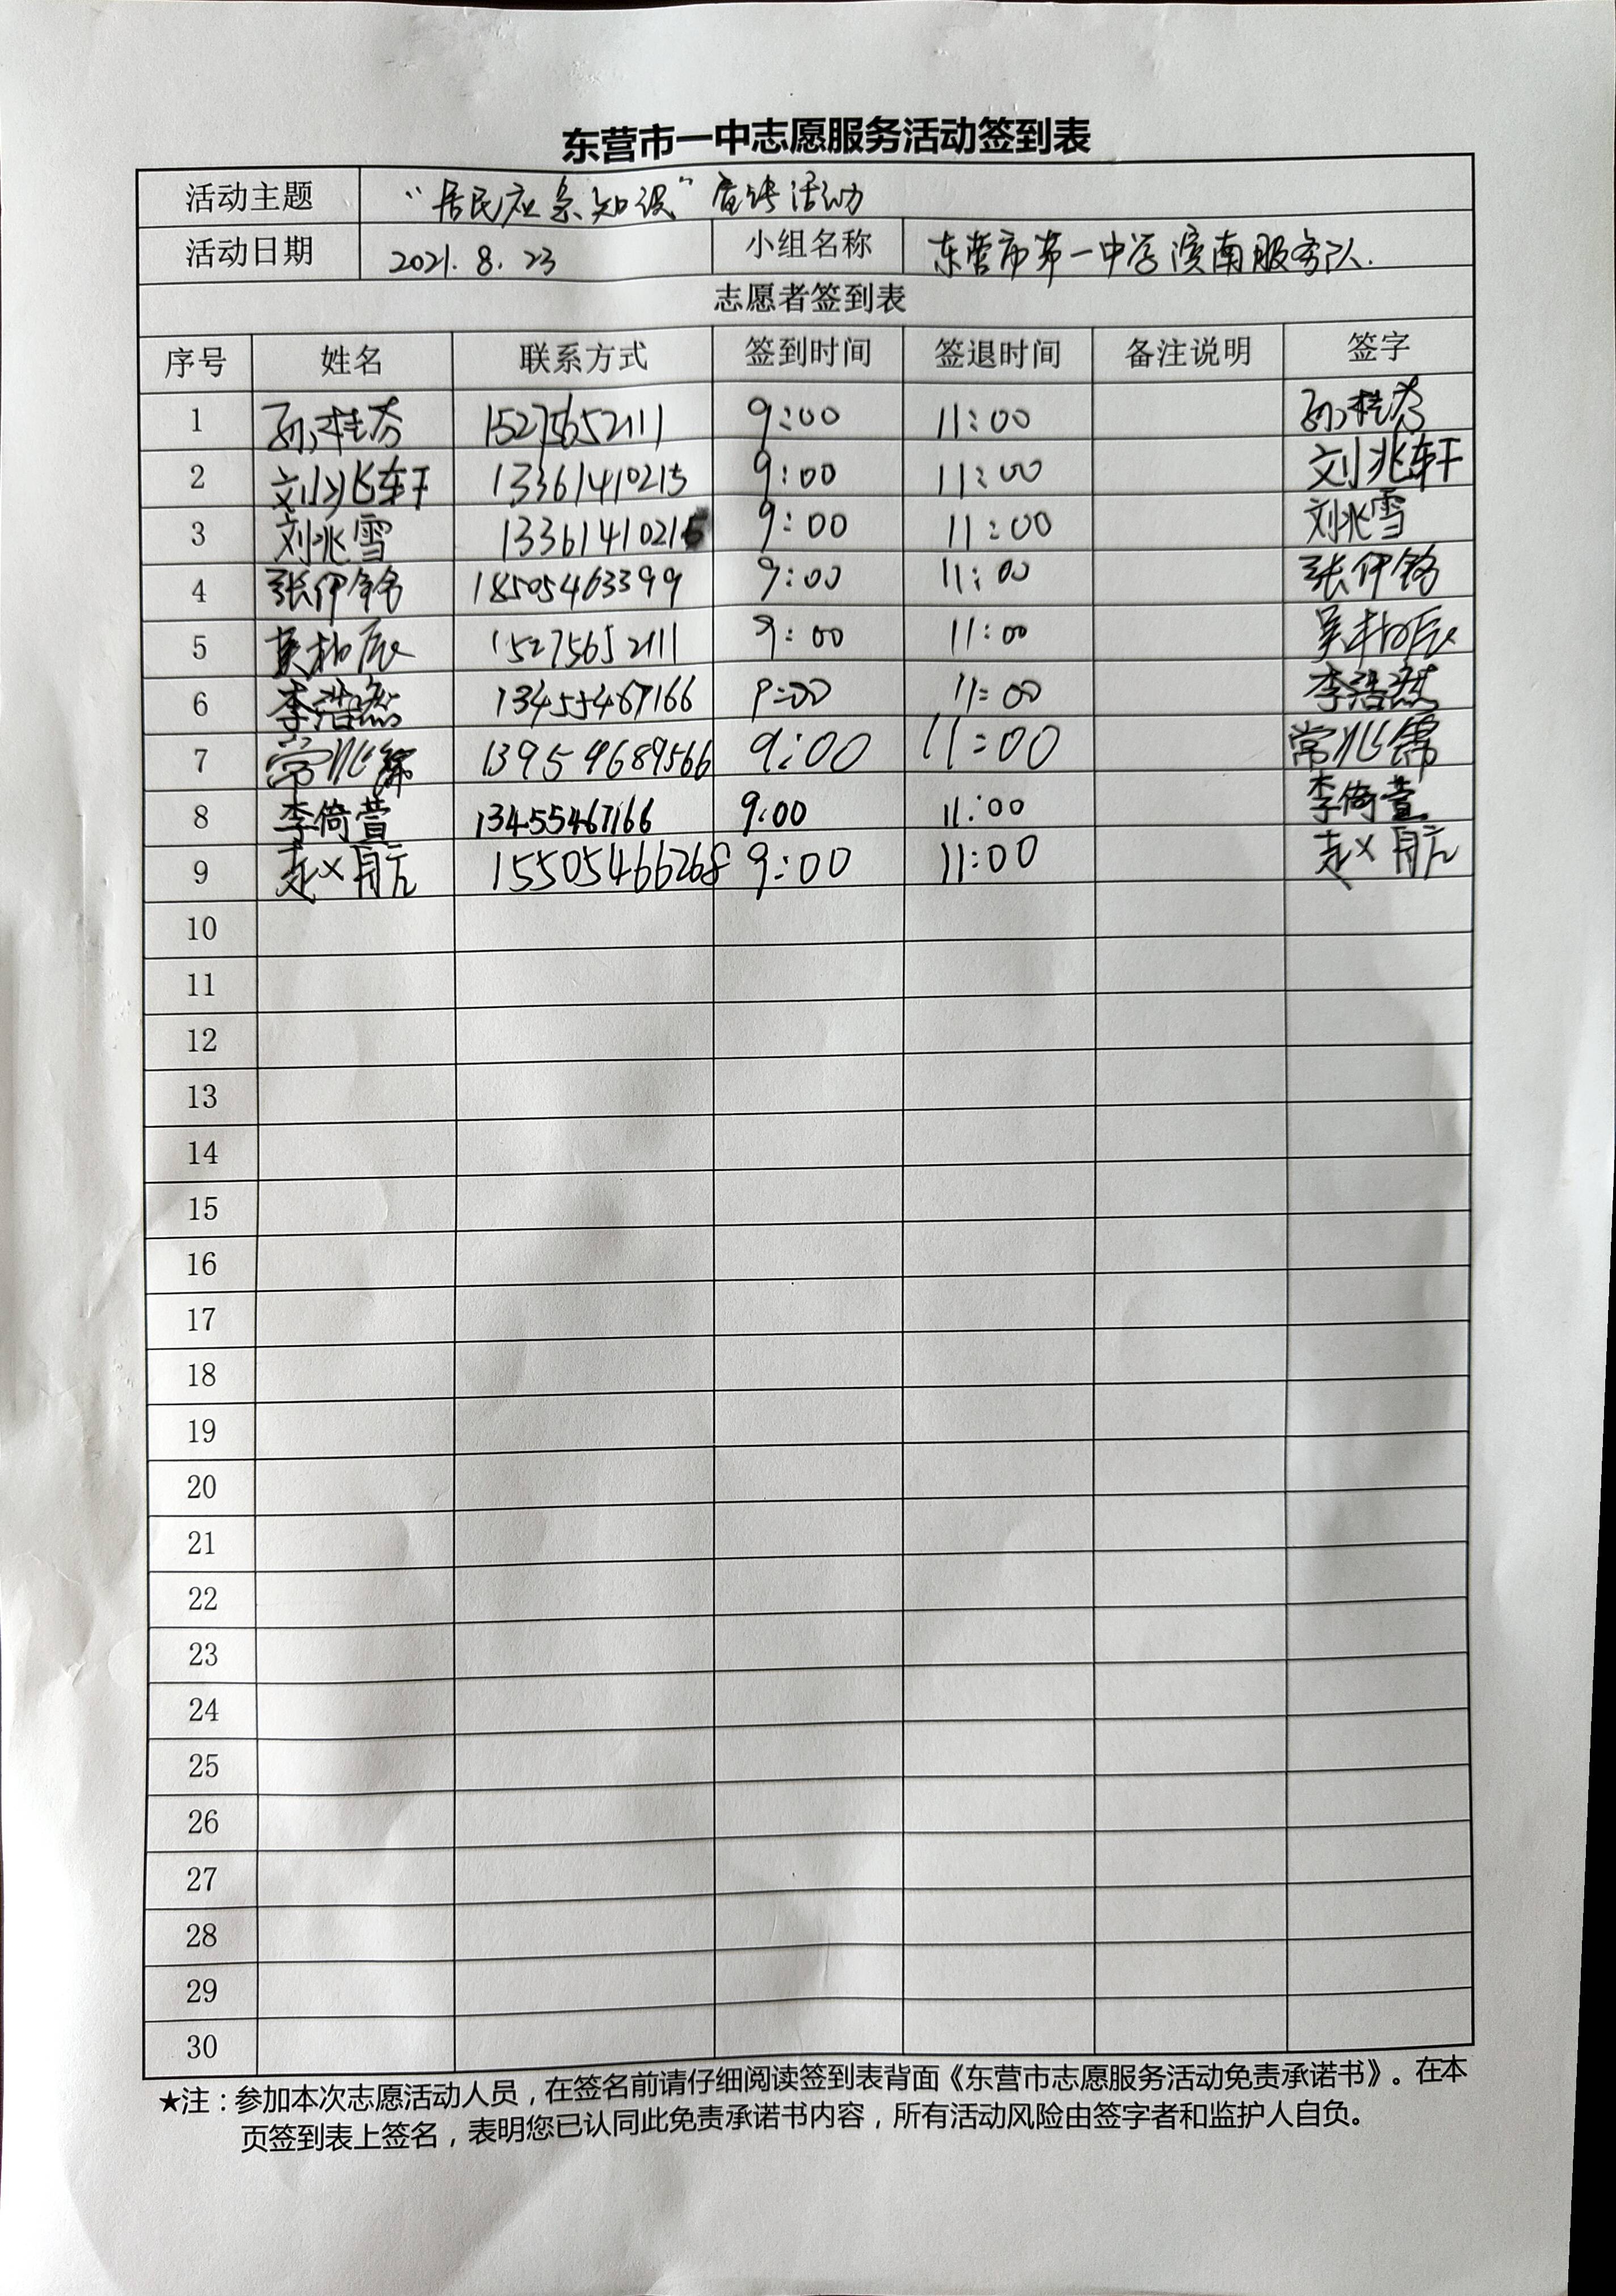 东营市一中志愿服务活动签到表
活动主题 “居民应急知识”宣传活动
活动日期 2021.8.23 小组名称 东营市第一中学滨南服务队.
志愿者签到表
序号 姓名 联系方式 签到时间 签退时间 备注说明 签字
1 孙桂芬 15275652111 9:00 11:00 孙桂芬
2 刘兆轩 13361410215 9:00 11:00 刘兆轩
3 刘兆雪 13361410215 9:00 11:00 刘兆雪
4 张伊铭 18505463399 9:00 11:00 张伊铭
5 吴柏辰 15275652111 9:00 11:00 吴柏辰
6 李浩然 13455467166 9:00 11:00 李浩然
7 常兆霈 13954689566 9:00 11:00 常兆霈
8 李倚萱 13455467166 9:00 11:00 李倚萱
9 赵航 15505466268 9:00 11:00 赵航
10
11
12
13
14
15
16
17
18
19
20
21
22
23
24
25
26
27
28
29
30
★注：参加本次志愿活动人员，在签名前请仔细阅读签到表背面《东营市志愿服务活动免责承诺书》。在本
页签到表上签名，表明您已认同此免责承诺书内容，所有活动风险由签字者和监护人自负。